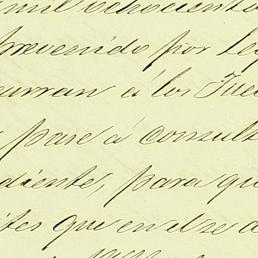 mil ochocientos
prevenido por le
curran á los Jue
pase á consult
diente, para qu
tes que en el se a